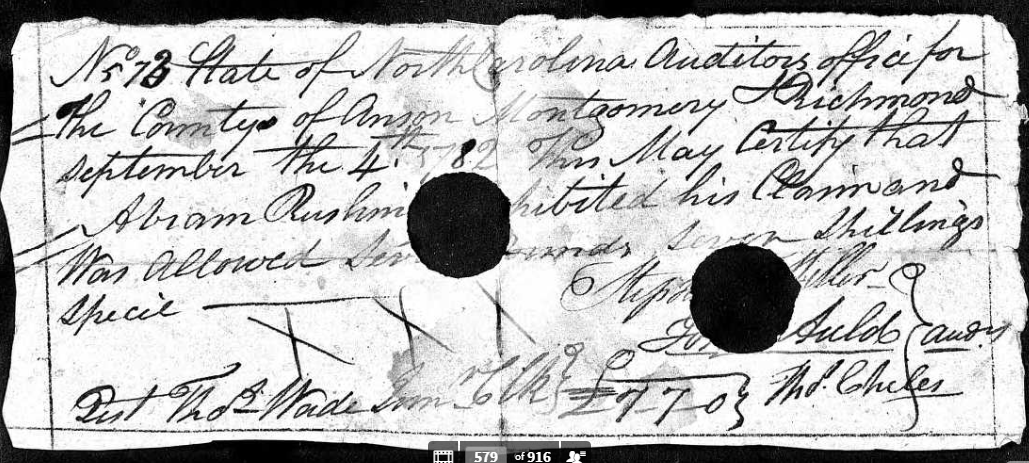 No 573 State of North Carolina Auditors office for
The County of Anson Montgomery & Richmond
September the 4th 1782 This May Certify that
Abram Rushin hibited his Claim and
Was Allowed Sev ounds seven Shillings
Specie
Step Miller
Jo Auld aud.s
Test Thos. Wade Jun.r Clk £7-7-0 Thos. Chiles
579 of 916